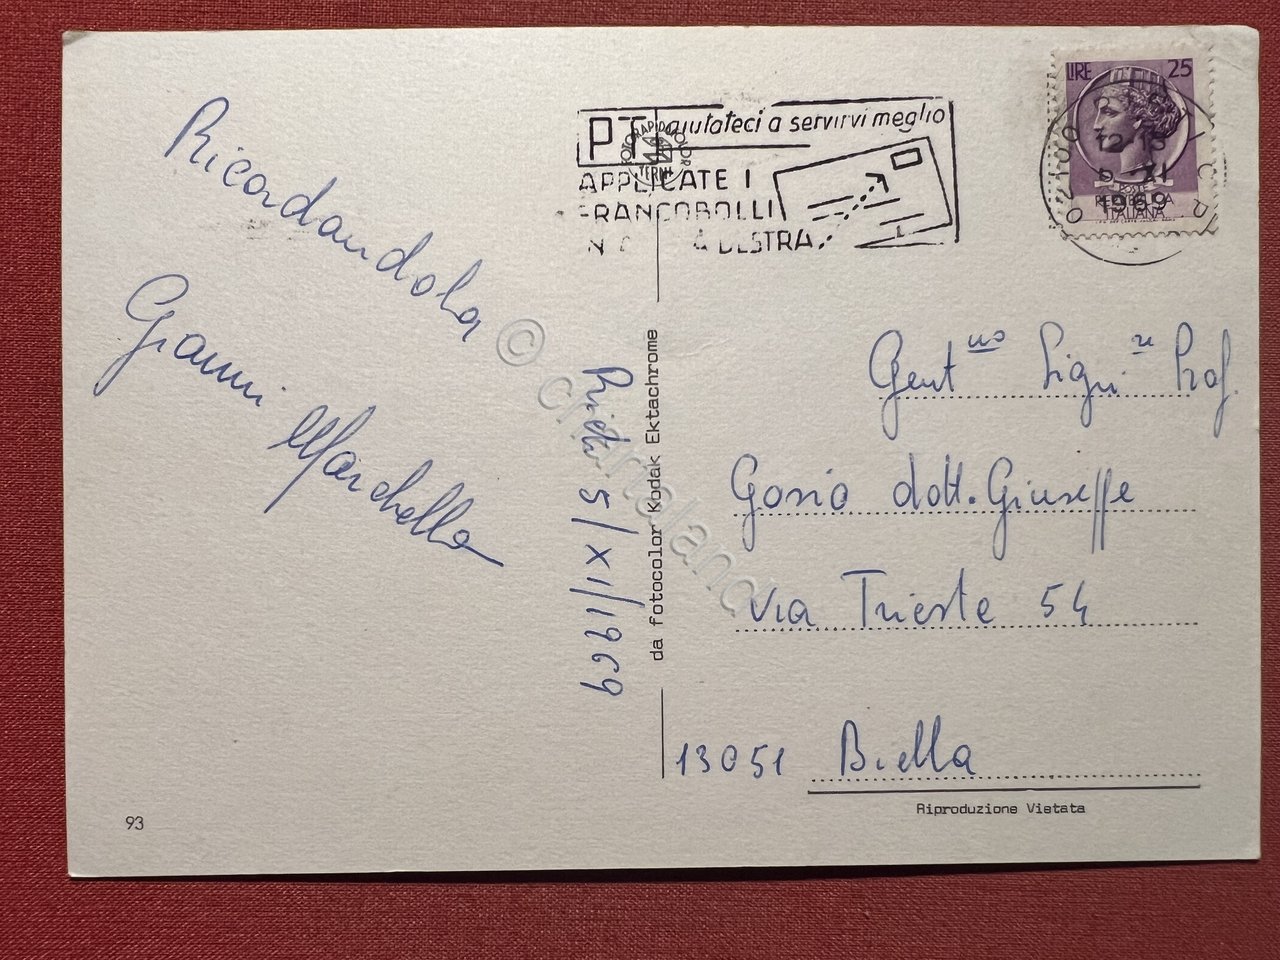 Ricordandola
Gianni Marchella
Rieti 5/XI/1969
da fotocolor Kodak Ektachrome
93
PT aiutateci a servirvi meglio
APPLICATE I
FRANCOBOLLI
DESTRA
LIRE 25
POSTE
REPUBBLICA
ITALIANA
02100 RIETI
12-13
5-XI
1969
FOTORAPIDACOLOR
TERNI
Gent.mo Sign.re Prof.
Gosio dott. Giuseppe
via Trieste 54
13051 Biella
Riproduzione Vietata
© cartoland